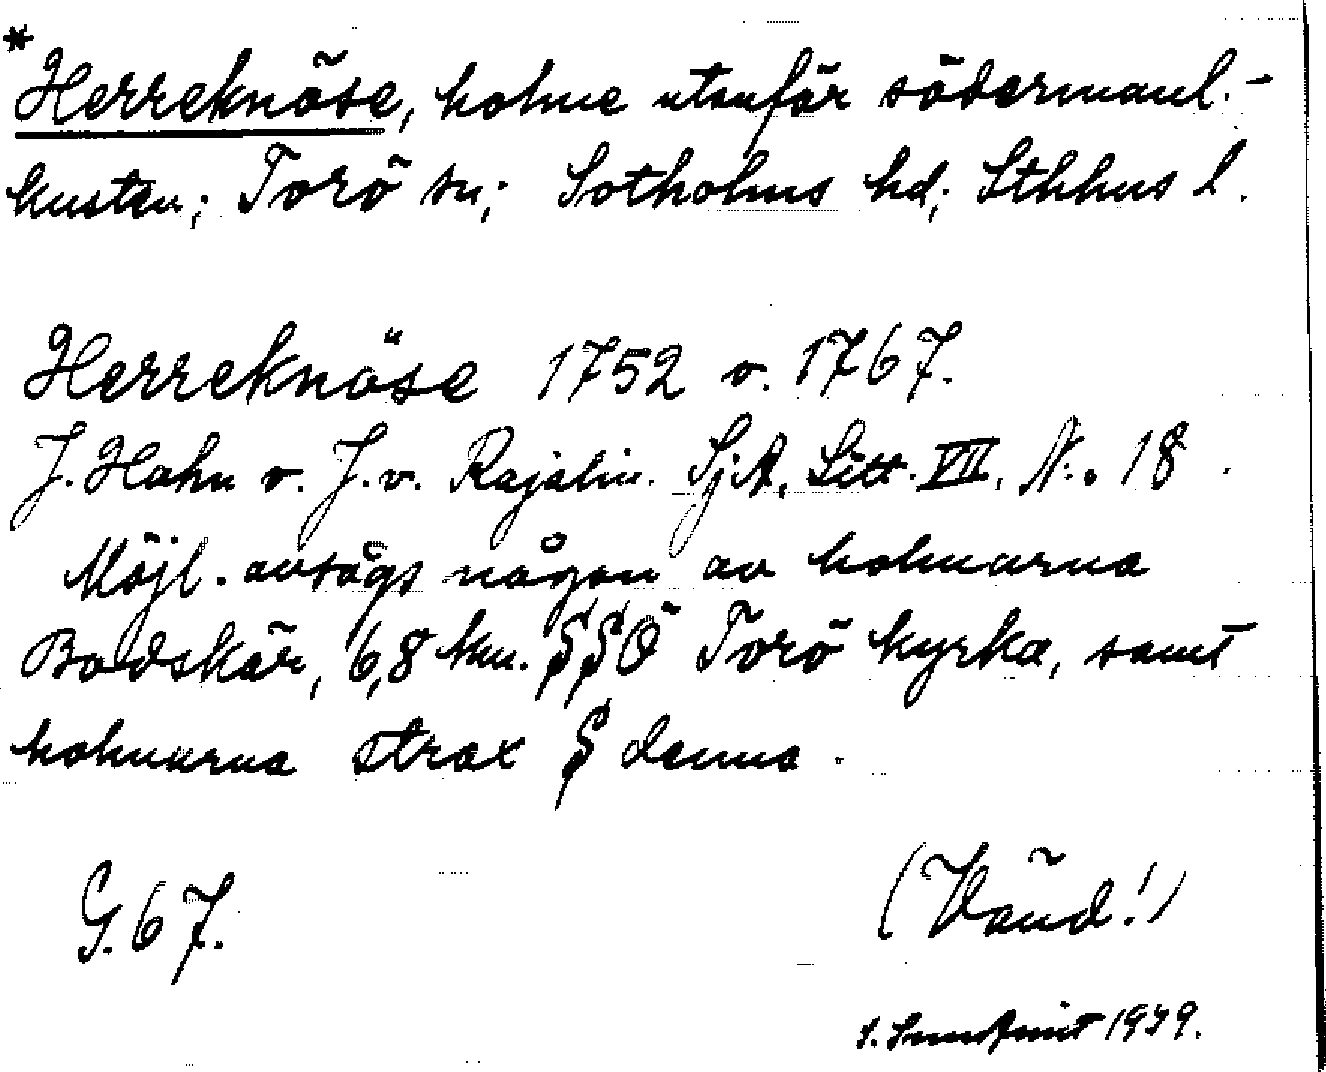 *Herreknöse, holme utanför södermanl.-
kusten; Torö sn; Sotholms hd; Sthlms l.
Herreknöse 1752 o. 1767.
J. Hahn o. J. v. Rajalin. SjA, Litt. VII, N:o 18
Möjl. avsågs någon av holmarna
Bodskär, 6,8 km. SSÖ Torö kyrka, samt
holmarna strax S denna.
G. 67.
(Vänd!)
1949.